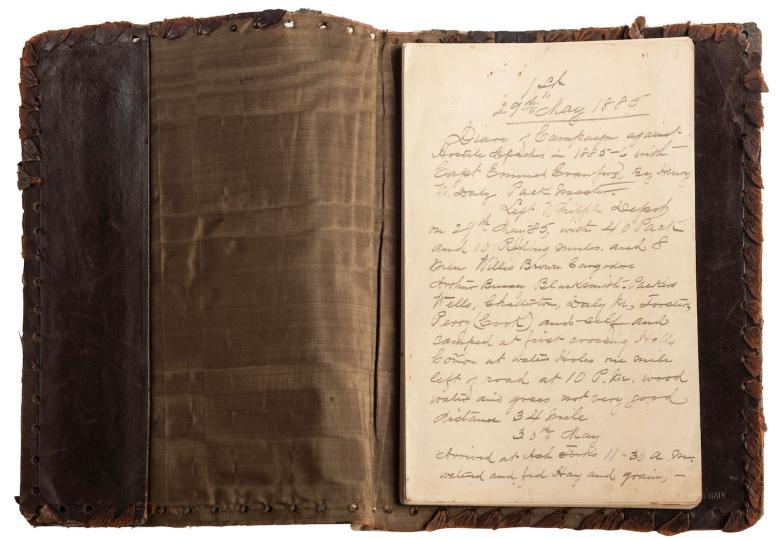 1st
29th May 1885
Diary of Campaign against
Hostile Apaches in 1885-6 with
Capt Emmet Crawford, By Henry
W. Daly Pack Master.
Left Whipple Depot
on 29th May 85, with 40 Pack
and 10 Riding mules. and 8
men Willis Brown Cargodore
Arthur Bussey Blacksmith - Packers
Wells, Chatterton, Daly Mc, Forster,
Perry (Cook) and self and
camped at first crossing Hells
Cañon at water Holes one mile
left of road at 10 P.M. wood
water and grass not very good
distance 34 mile
30th May
Arrived at Ash Forks 11-30 a.m.
watered and fed Hay and grain, -
DALY